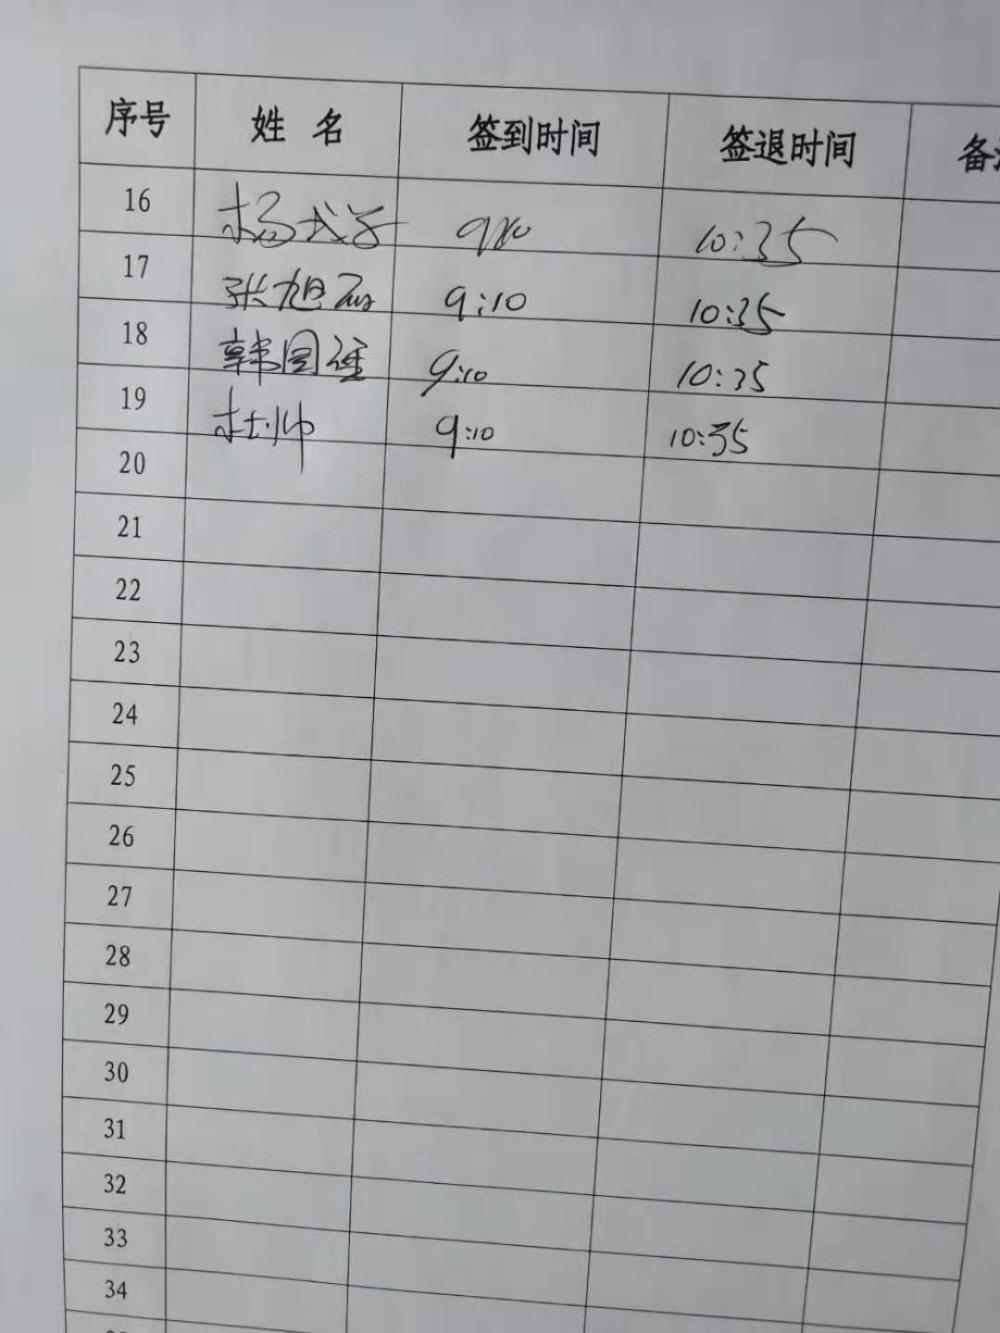 序号 姓 名 签到时间 签退时间 备
16 杨 9:10 10:35
17 张旭 9:10 10:35
18 韩国 9:10 10:35
19 杜帅 9:10 10:35
20
21
22
23
24
25
26
27
28
29
30
31
32
33
34